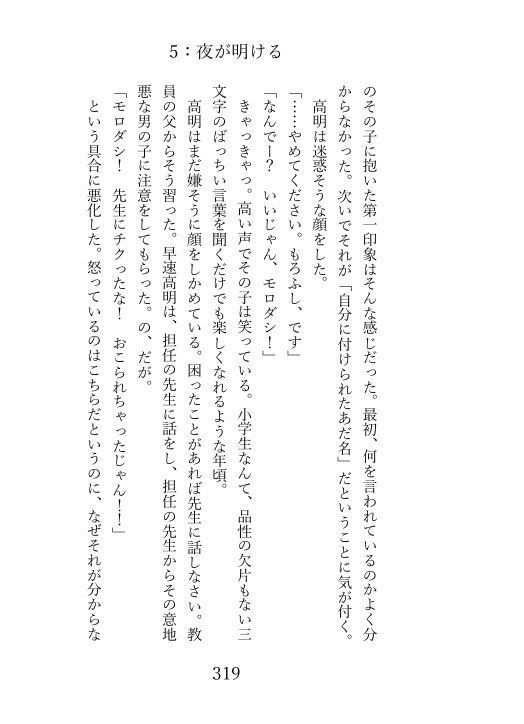 5：夜が明ける
のその子に抱いた第一印象はそんな感じだった。最初、何を言われているのかよく分
からなかった。次いでそれが「自分に付けられたあだ名」だということに気が付く。
　高明は迷惑そうな顔をした。
「……やめてください。もろふし、です」
「なんでー？　いいじゃん、モロダシ！」
　きゃっきゃっ。高い声でその子は笑っている。小学生なんて、品性の欠片もない三
文字のばっちい言葉を聞くだけでも楽しくなれるような年頃。
　高明はまだ嫌そうに顔をしかめている。困ったことがあれば先生に話しなさい。教
員の父からそう習った。早速高明は、担任の先生に話をし、担任の先生からその意地
悪な男の子に注意をしてもらった。の、だが。
「モロダシ！　先生にチクったな！　おこられちゃったじゃん！！」
　という具合に悪化した。怒っているのはこちらだというのに、なぜそれが分からな
319